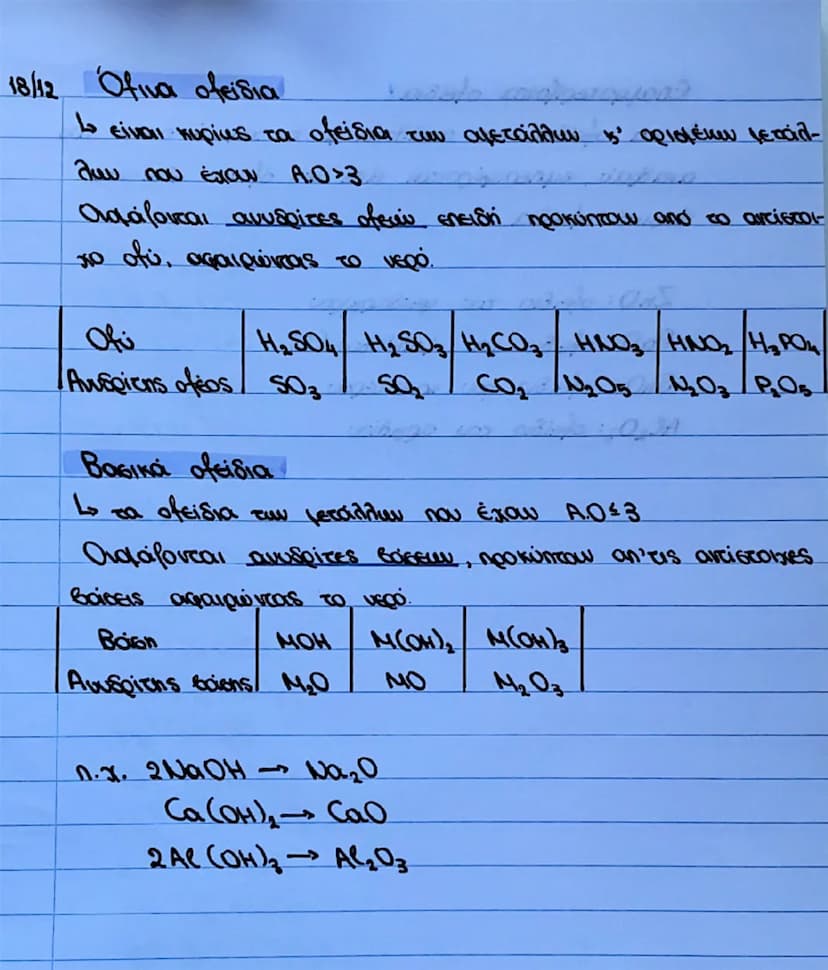 18/12 Όξινα οξείδια
↳ είναι κυρίως τα οξείδια των αμετάλλων κ' ορισμένων μετάλ-
λων που έχουν Α.Ο>3
Ονομάζονται ανυδρίτες οξέων επειδή προκύπτουν από το αντίστοι-
χο οξύ, αφαιρώντας το νερό.
Οξύ H₂SO₄ H₂SO₃ H₂CO₃ HNO₃ HNO₂ H₃PO₄
Ανυδρίτης οξέος SO₃ SO₂ CO₂ N₂O₅ N₂O₃ P₂O₅
Βασικά οξείδια
↳ τα οξείδια των μετάλλων που έχουν Α.Ο≤3
Ονομάζονται ανυδρίτες βάσεων, προκύπτουν απ'τις αντίστοιχες
βάσεις αφαιρώντας το νερό.
Βάση MOH M(OH)₂ M(OH)₃
Ανυδρίτης βάσης M₂O MO M₂O₃
π.χ. 2NaOH → Na₂O
Ca(OH)₂ → CaO
2Al(OH)₃ → Al₂O₃